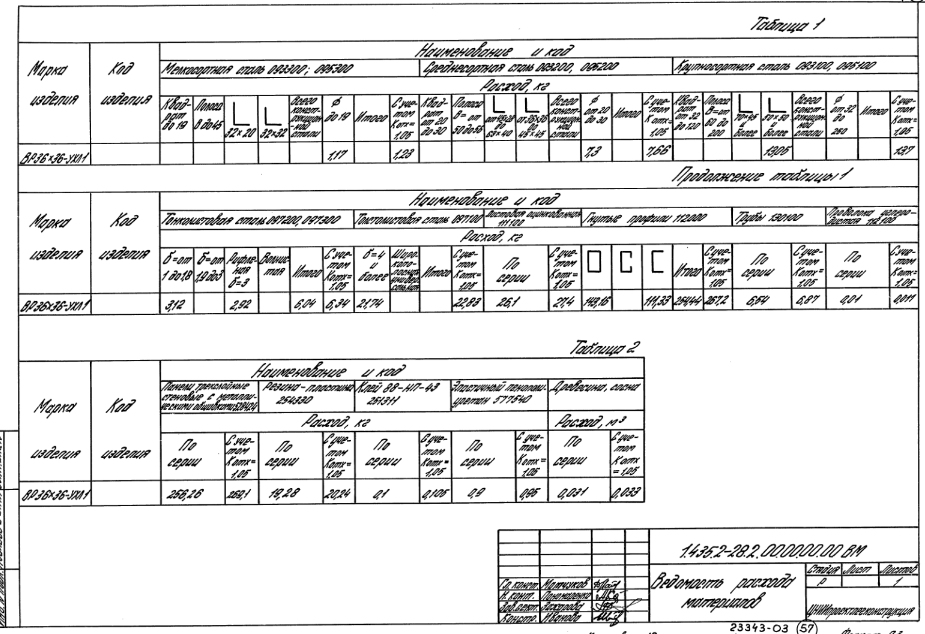 Таблица 1
Марка изделия
Код изделия
Наименование и код
Мелкосортная сталь 093300; 095300
Среднесортная сталь 093200, 095200
Крупносортная сталь 093100, 095100
Расход, кг
Квадрат до 19
Полоса В до 45
32×20
32×32
Всего конструкционной стали
ф до 19
Итого
С учетом Котх= 1,05
Квадрат от 20 до 30
Полоса В=от 50 до 55
Всего конструкционной стали
ф от 20 до 30
Итого
С учетом Котх= 1,05
Квадрат от 32 до 120
Полоса В=от 60 до 200
70×45 и более
50×50 и более
Всего конструкционной стали
ф от 32 до 250
Итого
С учетом Котх= 1,05
ВР36×36-УХЛ1 1,17 1,23 7,3 7,66 13,05 13,7
Продолжение таблицы 1
Марка изделия
Код изделия
Наименование и код
Тонколистовая сталь 097200, 097300
Толстолистовая сталь 097100
Листовая оцинкованная 111100
Гнутые профили 112000
Трубы 130100
Расход, кг
б=от 1 до 1,8
б=от 1,9 до 3
Рифленая б=3
Волнистая
Итого
С учетом Котх= 1,05
б=4 и более
Широкополосная универсальная
Итого
С учетом Котх= 1,05
По серии
С учетом Котх= 1,05
Итого
С учетом Котх= 1,05
По серии
С учетом Котх= 1,05
По серии
С учетом Котх= 1,05
ВР36×36-УХЛ1 3,12 2,92 6,04 6,34 21,74 22,83 26,1 27,4 111,33 254,44 267,2 6,54 6,87 0,01 0,011
Таблица 2
Марка изделия
Код изделия
Наименование и код
Панели трехслойные стеновые с металлическими обшивками
Резина-пластина 254530
Клей 88-НП-43 251311
Эластичный пенополиуретан 577540
Древесина, сосна
Расход, кг
Расход, м³
По серии
С учетом Котх= 1,05
По серии
С учетом Котх= 1,05
По серии
С учетом Котх= 1,05
По серии
С учетом Котх= 1,05
По серии
С учетом Котх = 1,05
ВР36×36-УХЛ1 256,26 269,1 19,28 20,24 0,1 0,105 0,9 0,95 0,031 0,033
1.435.2-28.2.00.00.00.00 ВМ
Ведомость расхода материалов
Стадия Лист Листов
Р 1
ЦНИИпроектлегконструкция
Гл. конст.
Н. конт. Пономаренко
Зав. сект. Захарова
Констр. Иванова
23343-03 (57)